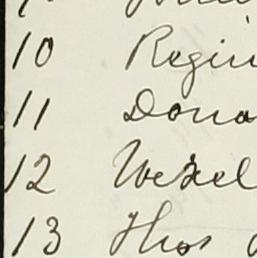 10 Regin
11 Dona
12 Wexel
13 Thos